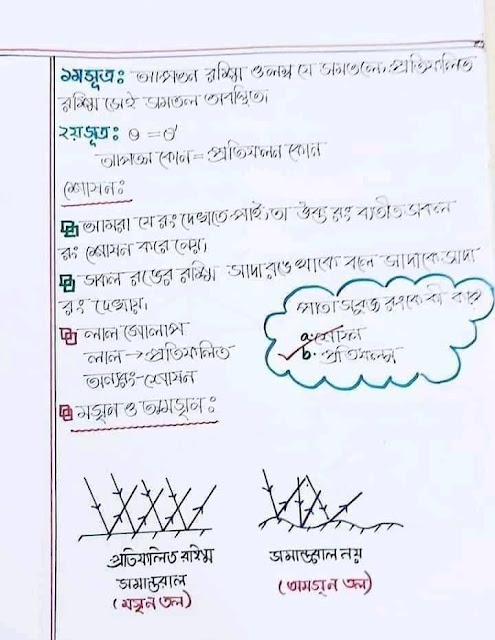 ১মসূত্র: আপতন রশ্মি ও লম্ব যে সমতলে, প্রতিফলিত
রশ্মি সেই সমতলে অবস্থিত।
২য়সূত্র: θ = θ'
আপতন কোন = প্রতিফলন কোন
শোষন:
আমরা যে রং দেখতে পাই, তা উক্ত রং ব্যতীত সকল
রং শোষন করে নেয়।
সকল রঙের রশ্মি সাদা রঙে থাকে বলে সাদাকে সাদা
রং দেখায়।
পাতা সবুজ রংকে কী করে
a. শোষন
b. প্রতিফলন
লাল গোলাপ
লাল → প্রতিফলিত
অন্যরং - শোষন
মসৃন ও অমসৃন:
প্রতিফলিত রশ্মি
সমান্তরাল
(মসৃন তল)
সমান্তরাল নয়
(অমসৃন তল)